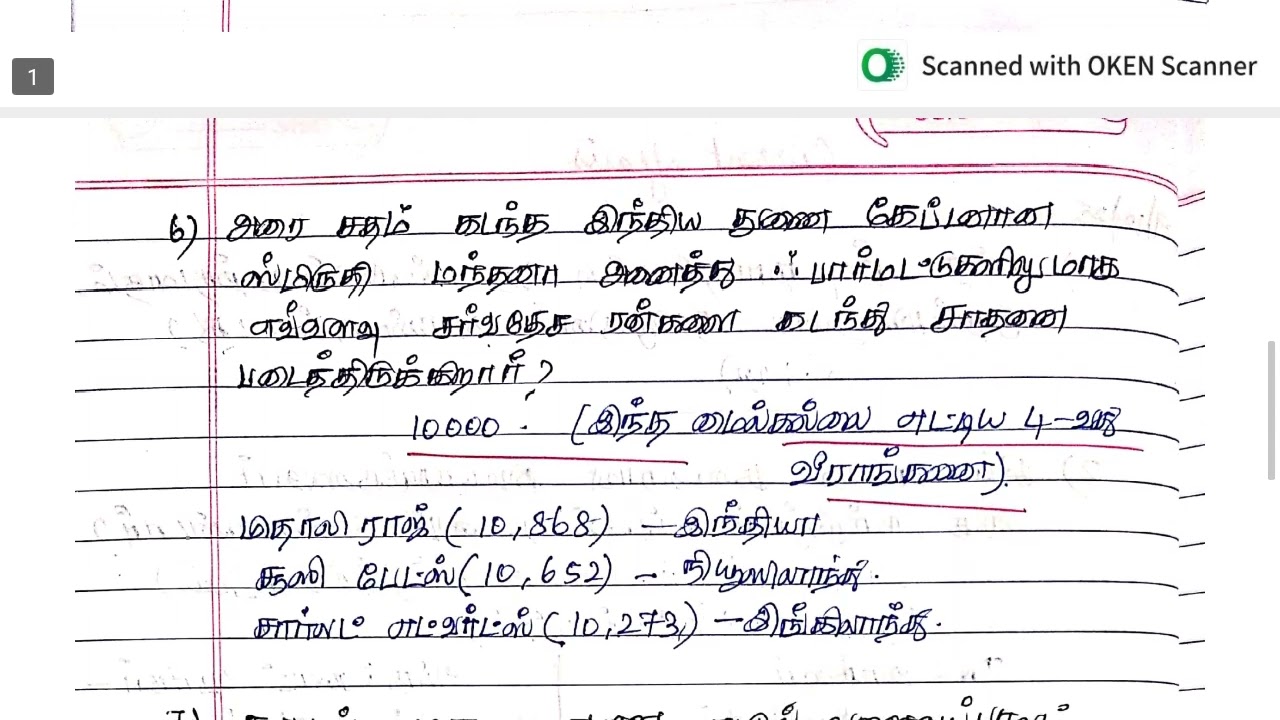 1
Scanned with OKEN Scanner
6) அரை சதம் கடந்த இந்திய துணை கேப்டனான
ஸ்மிருதி மந்தனா அனைத்து ஃபார்மட்டுகளிலுமாக
எவ்வளவு சர்வதேச ரன்களை கடந்து சாதனை
படைத்திருக்கிறார்?
10000. (இந்த மைல்கல்லை எட்டிய 4-வது
வீராங்கனை).
மிதாலி ராஜ் (10,868) – இந்தியா
சூஸி பேட்ஸ் (10,652) – நியூஸிலாந்து.
சார்லட் எட்வர்ட்ஸ் (10,273) – இங்கிலாந்து.
7)